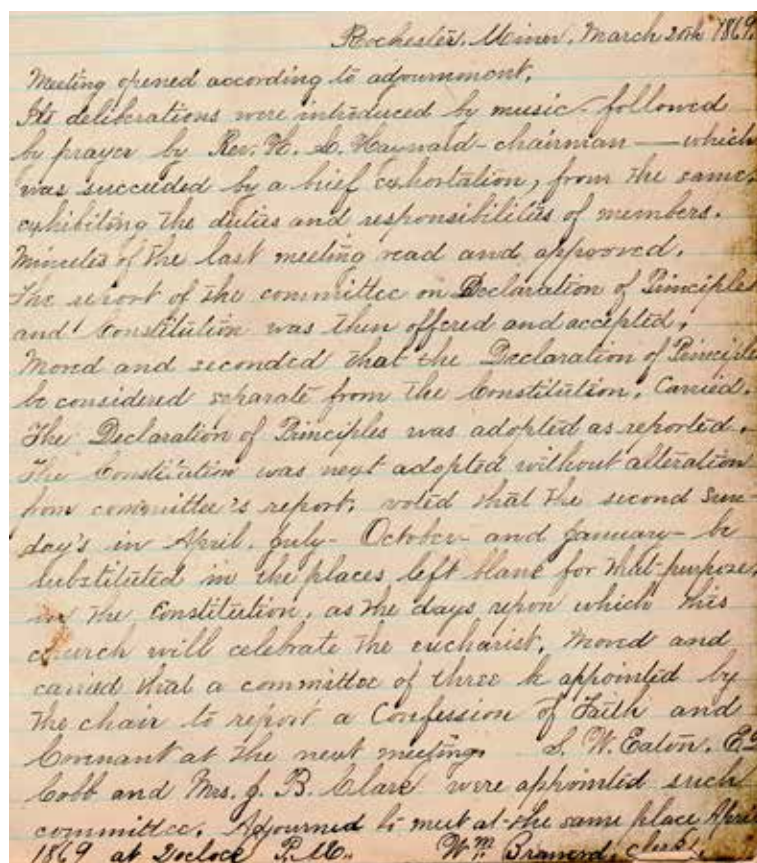 Rochester, Minn. March 20th 1869.
Meeting opened according to adjournment.
Its deliberations were introduced by music - followed
by prayer by Rev. H. L. Hayward - chairman — which
was succeeded by a brief exhortation, from the same,
exhibiting the duties and responsibilities of members.
Minutes of the last meeting read and approved.
The report of the committee on Declaration of Principles
and Constitution was then offered and accepted.
Moved and seconded that the Declaration of Principle
be considered separate from the Constitution. Carried.
The Declaration of Principles was adopted as reported.
The Constitution was next adopted without alteration
from committee's report. voted that the second Sun-
day's in April. July - October - and January - be
substituted in the places left blank for that purpose,
in the Constitution, as the days upon which this
church will celebrate the eucharist. Moved and
carried that a committee of three be appointed by
the chair to report a Confession of Faith and
Covenant at the next meeting. S. W. Eaton.
Cobb and Mrs. J. B. Clark were appointed such
committee. Adjourned to meet at the same place April
1869 at 2 oclock P.M. Wm. Brainerd, clerk.